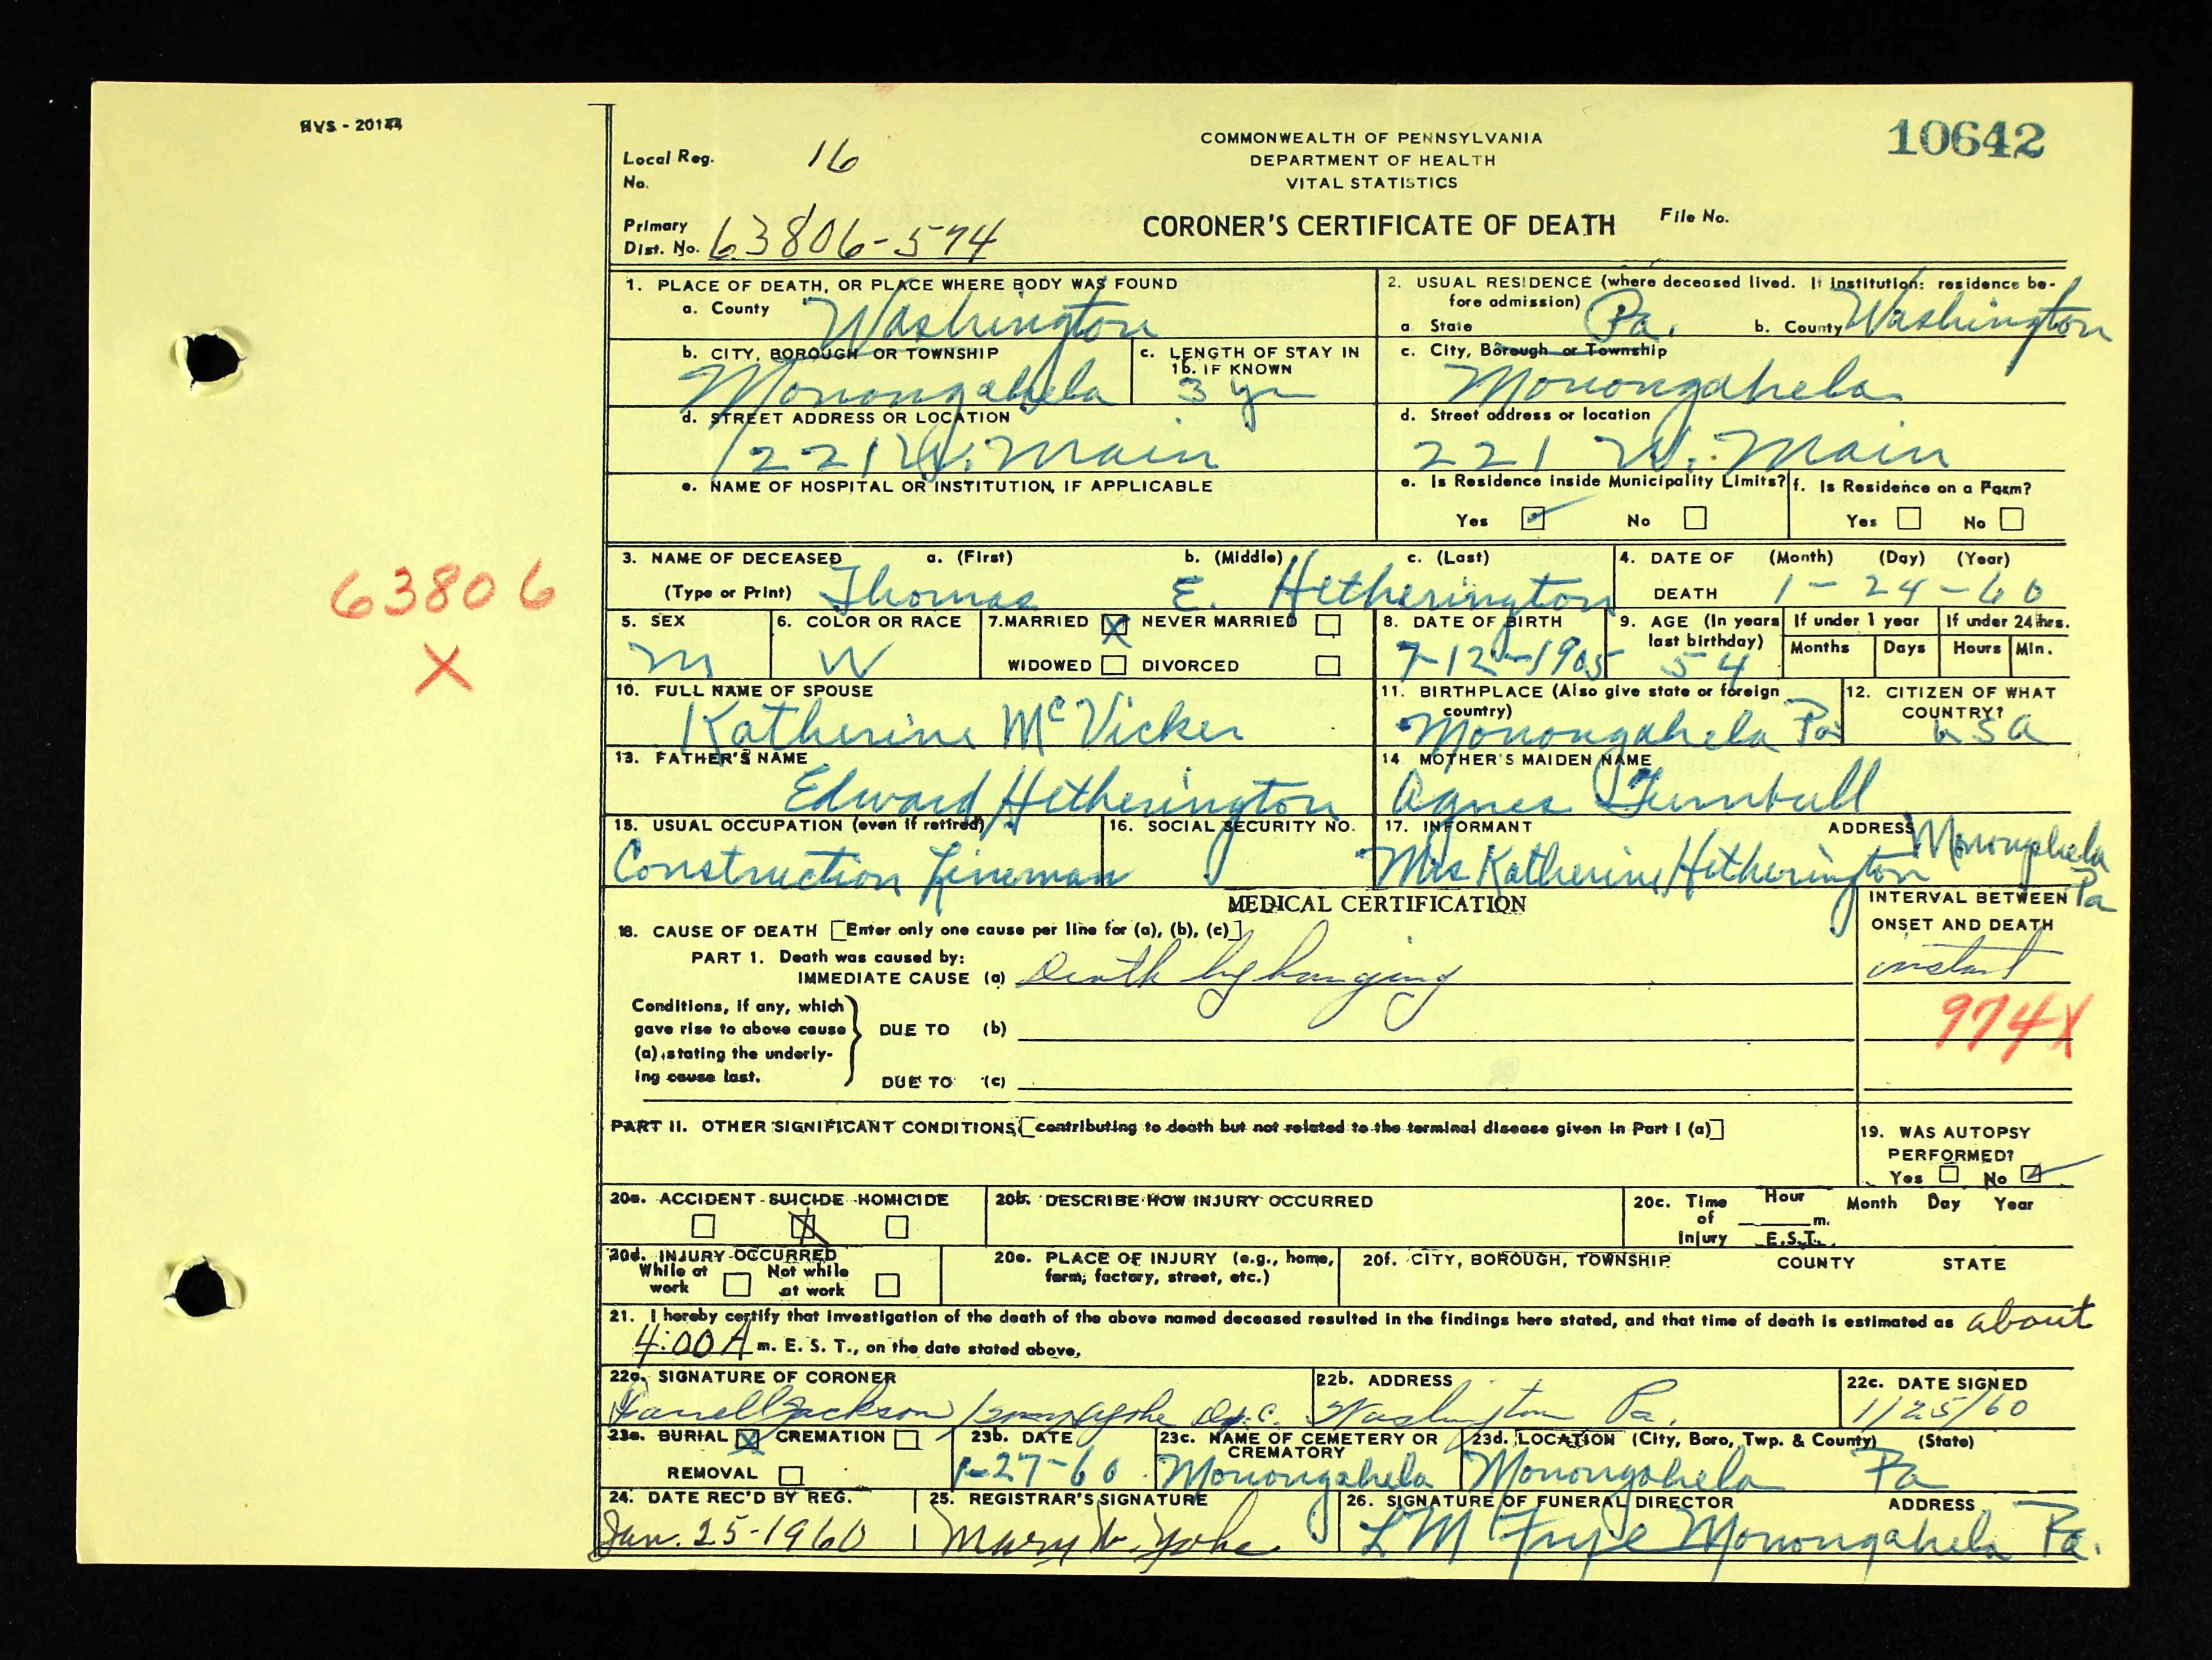 HVS - 20144
10642
Local Reg. No. 16
COMMONWEALTH OF PENNSYLVANIA
DEPARTMENT OF HEALTH
VITAL STATISTICS
Primary Dist. No. 63806-574
CORONER'S CERTIFICATE OF DEATH File No.
1. PLACE OF DEATH, OR PLACE WHERE BODY WAS FOUND
a. County Washington
2. USUAL RESIDENCE (where deceased lived. If institution: residence before admission)
a. State Pa. b. County Washington
b. CITY, BOROUGH OR TOWNSHIP Monongahela
c. LENGTH OF STAY IN 1b. IF KNOWN 3 yr
c. City, Borough or Township Monongahela
d. STREET ADDRESS OR LOCATION 221 W. Main
d. Street address or location 221 W. Main
e. NAME OF HOSPITAL OR INSTITUTION, IF APPLICABLE
e. Is Residence inside Municipality Limits? Yes No
f. Is Residence on a Farm? Yes No
63806
X
3. NAME OF DECEASED a. (First) b. (Middle) c. (Last)
(Type or Print) Thomas E. Hetherington
4. DATE OF DEATH (Month) (Day) (Year) 1-24-60
5. SEX M
6. COLOR OR RACE W
7. MARRIED X NEVER MARRIED
WIDOWED DIVORCED
8. DATE OF BIRTH 7-12-1905
9. AGE (In years last birthday) 54
If under 1 year Months Days
If under 24 hrs. Hours Min.
10. FULL NAME OF SPOUSE Katherine McVicker
11. BIRTHPLACE (Also give state or foreign country) Monongahela Pa
12. CITIZEN OF WHAT COUNTRY? USA
13. FATHER'S NAME Edward Hetherington
14 MOTHER'S MAIDEN NAME Agnes Turnbull
15. USUAL OCCUPATION (even if retired) Construction Lineman
16. SOCIAL SECURITY NO.
17. INFORMANT Mrs Katherine Hetherington
ADDRESS Monongahela Pa
MEDICAL CERTIFICATION
18. CAUSE OF DEATH [Enter only one cause per line for (a), (b), (c)]
INTERVAL BETWEEN ONSET AND DEATH
PART 1. Death was caused by:
IMMEDIATE CAUSE (a) Death by hanging instant
Conditions, if any, which gave rise to above cause (a), stating the underlying cause last.
DUE TO (b)
974X
DUE TO (c)
PART II. OTHER SIGNIFICANT CONDITIONS [contributing to death but not related to the terminal disease given in Part I (a)]
19. WAS AUTOPSY PERFORMED? Yes No
20a. ACCIDENT SUICIDE HOMICIDE
20b. DESCRIBE HOW INJURY OCCURRED
20c. Time of Injury Hour m. E.S.T. Month Day Year
20d. INJURY OCCURRED While at work Not while at work
20e. PLACE OF INJURY (e.g., home, farm, factory, street, etc.)
20f. CITY, BOROUGH, TOWNSHIP COUNTY STATE
21. I hereby certify that investigation of the death of the above named deceased resulted in the findings here stated, and that time of death is estimated as about
4:00 A m. E. S. T., on the date stated above.
22a. SIGNATURE OF CORONER Jackson
22b. ADDRESS Washington Pa.
22c. DATE SIGNED 1/25/60
23a. BURIAL X CREMATION
REMOVAL
23b. DATE 1-27-60
23c. NAME OF CEMETERY OR CREMATORY Monongahela
23d. LOCATION (City, Boro, Twp. & County) (State) Monongahela Pa
24. DATE REC'D BY REG. Jan. 25-1960
25. REGISTRAR'S SIGNATURE Mary Yohe
26. SIGNATURE OF FUNERAL DIRECTOR ADDRESS
L M Frye Monongahela Pa.